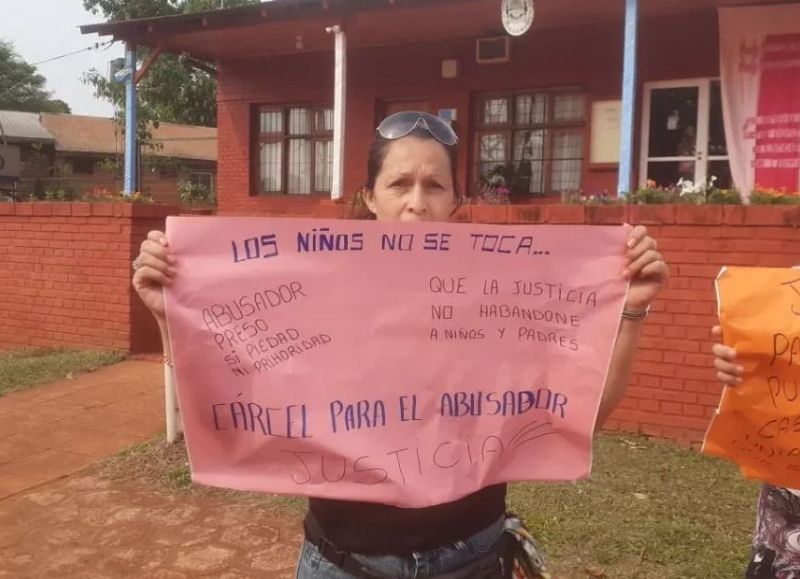 LOS NIÑOS NO SE TOCA...
ABUSADOR
PRESO
SI PIEDAD
NI PRIHORIDAD
QUE LA JUSTICIA
NO HABANDONE
A NIÑOS Y PADRES
CÁRCEL PARA EL ABUSADOR
JUSTICIA
J
PA
PU
CAS